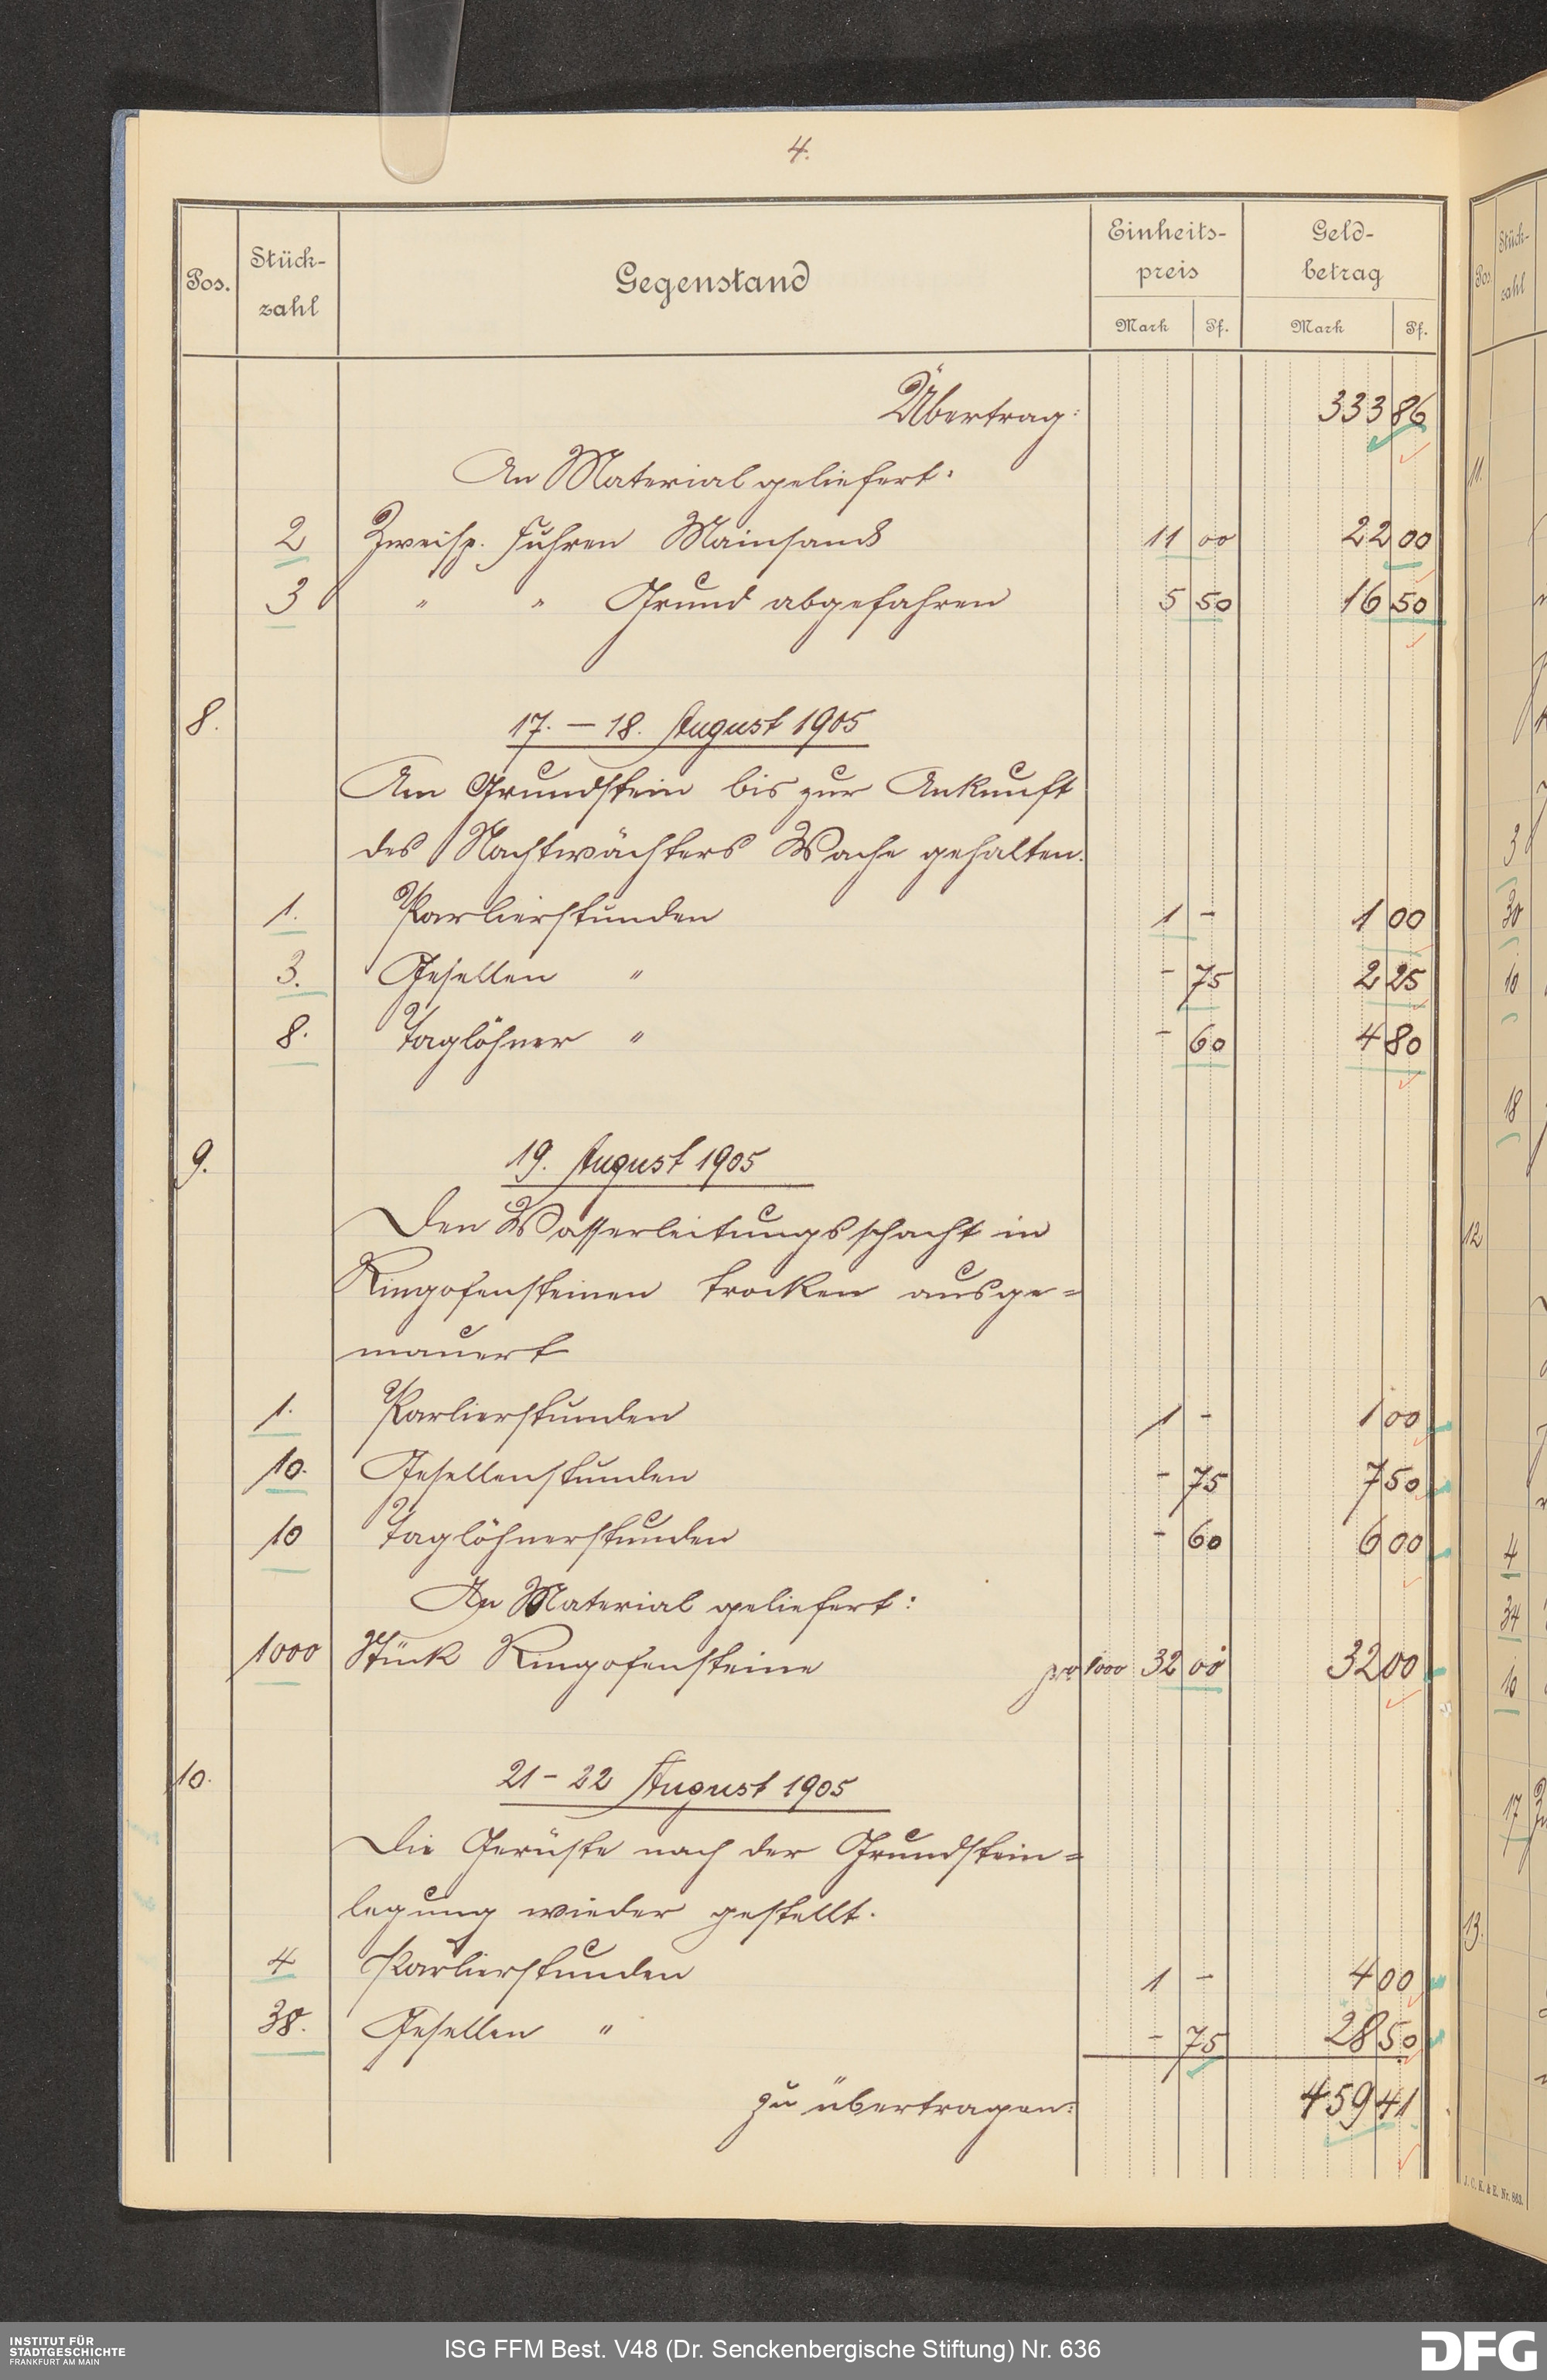 4.
Pos. Stück- Gegenstand Einheits- Geld-
zahl preis betrag
Mark Pf. Mark Pf.
Übertrag: 333 86
An Material geliefert:
2 Zweisp. Fuhren Mainsand 11 00 22 00
3 " " Grund abgefahren 5 50 16 50
8. 17. – 18. August 1905
Am Grundstein bis zur Ankunft
des Nachtwächters Wache gehalten.
1. Parlierstunden 1 - 1 00
3. Gesellen " - 75 2 25
8. Taglöhner " - 60 4 80
9. 19. August 1905
Den Wasserleitungsschacht in
Ringofensteinen trocken ausge=
mauert
1. Parlierstunden 1 - 1 00
10. Gesellenstunden - 75 7 50
10 Taglöhnerstunden - 60 6 00
An Material geliefert:
1000 Stück Ringofensteine pro 1000 32 00 32 00
10. 21 – 22 August 1905
Die Gerüste nach der Grundstein=
legung wieder gestellt.
4 Parlierstunden 1 - 4 00
38. Gesellen " - 75 28 50
zu übertragen: 459 41
Pos. Stück-
zahl
11.
3
30
10
18
12
4
34
10
17
13.
J. C. K. & E. Nr. 863.
INSTITUT FÜR
STADTGESCHICHTE
FRANKFURT AM MAIN
ISG FFM Best. V48 (Dr. Senckenbergische Stiftung) Nr. 636
DFG